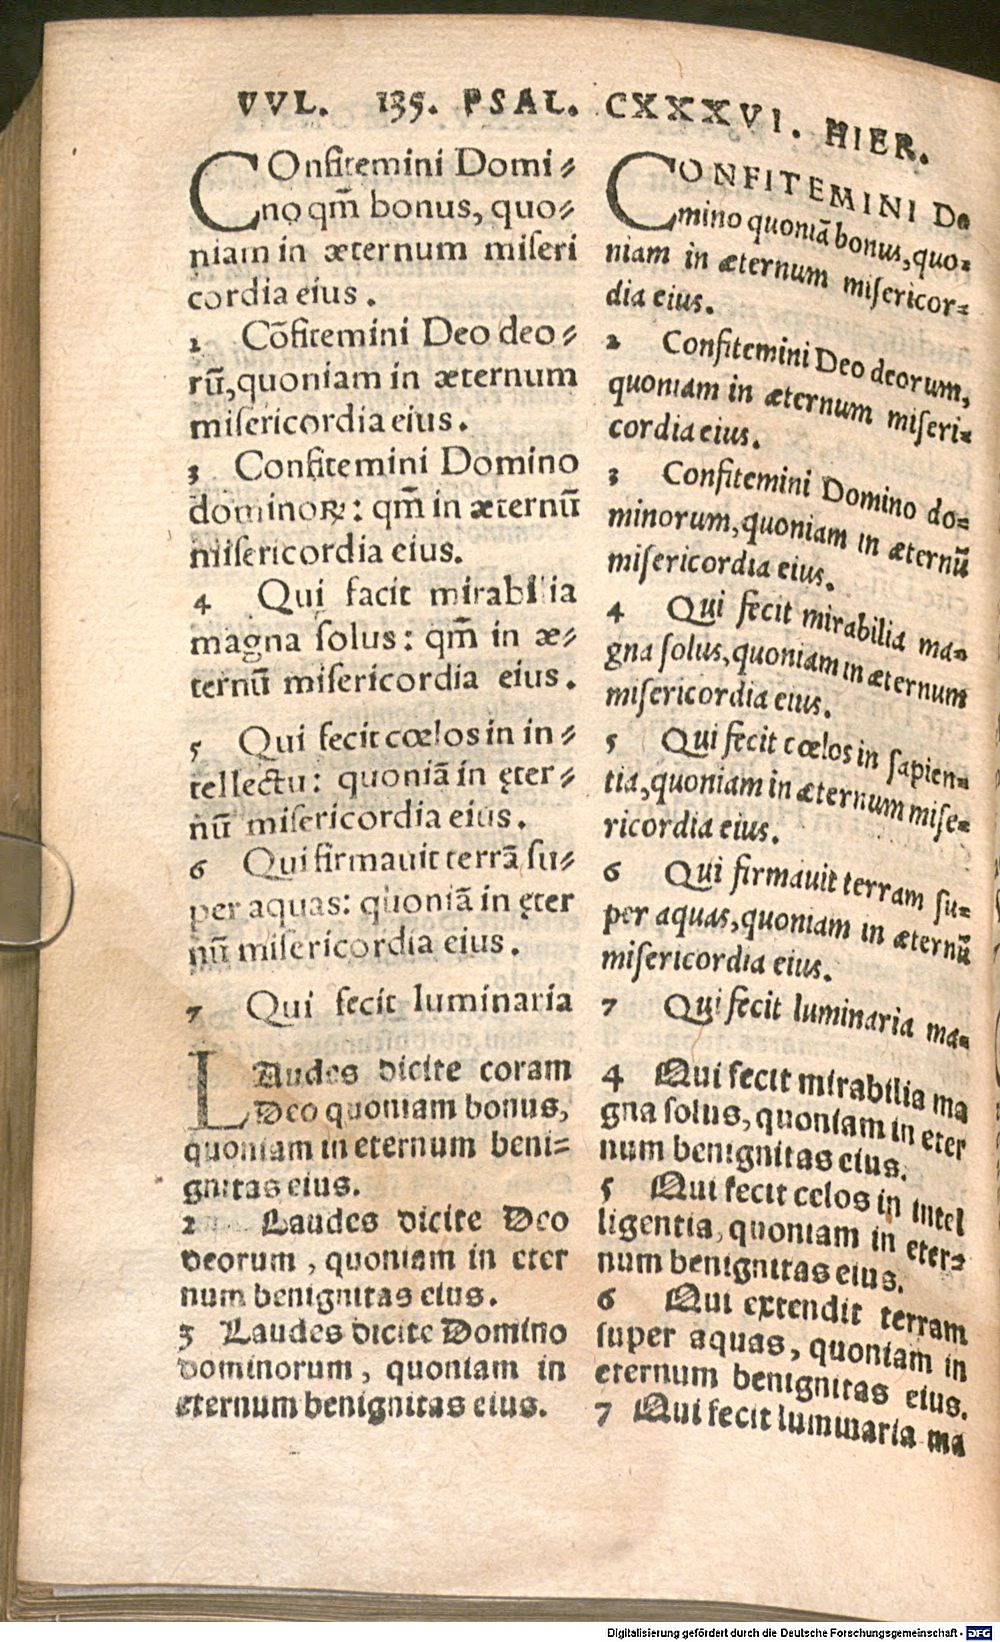 VVL. 135. PSAL. CXXXVI. HIER.
COnfitemini Domi⸗
no qm̄ bonus, quo⸗
niam in æternum miseri
cordia eius.
2 Cōfitemini Deo deo⸗
rū, quoniam in æternum
misericordia eius.
3 Confitemini Domino
dominoꝝ: qm̄ in æternū
misericordia eius.
4 Qui facit mirabilia
magna solus: qm̄ in æ⸗
ternū misericordia eius.
5 Qui fecit cœlos in in⸗
tellectu: quoniā in ęter⸗
nū misericordia eius.
6 Qui firmauit terrā su⸗
per aquas: quoniā in ęter
nū misericordia eius.
7 Qui fecit luminaria
CONFITEMINI Do
mino quoniā bonus, quo⸗
niam in æternum misericor⸗
dia eius.
2 Confitemini Deo deorum,
quoniam in æternum miseri⸗
cordia eius.
3 Confitemini Domino do⸗
minorum, quoniam in æternū
misericordia eius.
4 Qui fecit mirabilia ma⸗
gna solus, quoniam in æternum
misericordia eius.
5 Qui fecit cœlos in sapien⸗
tia, quoniam in æternum mise⸗
ricordia eius.
6 Qui firmauit terram su⸗
per aquas, quoniam in æternū
misericordia eius.
7 Qui fecit luminaria ma⸗
LAudes dicite coram
Deo quoniam bonus,
quoniam in eternum beni⸗
gnitas eius.
2 Laudes dicite Deo
deorum, quoniam in eter
num benignitas eius.
3 Laudes dicite Domino
dominorum, quoniam in
eternum benignitas eius.
4 Qui fecit mirabilia ma
gna solus, quoniam in eter
num benignitas eius.
5 Qui fecit celos in intel
ligentia, quoniam in eter⸗
num benignitas eius.
6 Qui extendit terram
super aquas, quoniam in
eternum benignitas eius.
7 Qui fecit luminaria ma
Digitalisierung gefördert durch die Deutsche Forschungsgemeinschaft - DFG